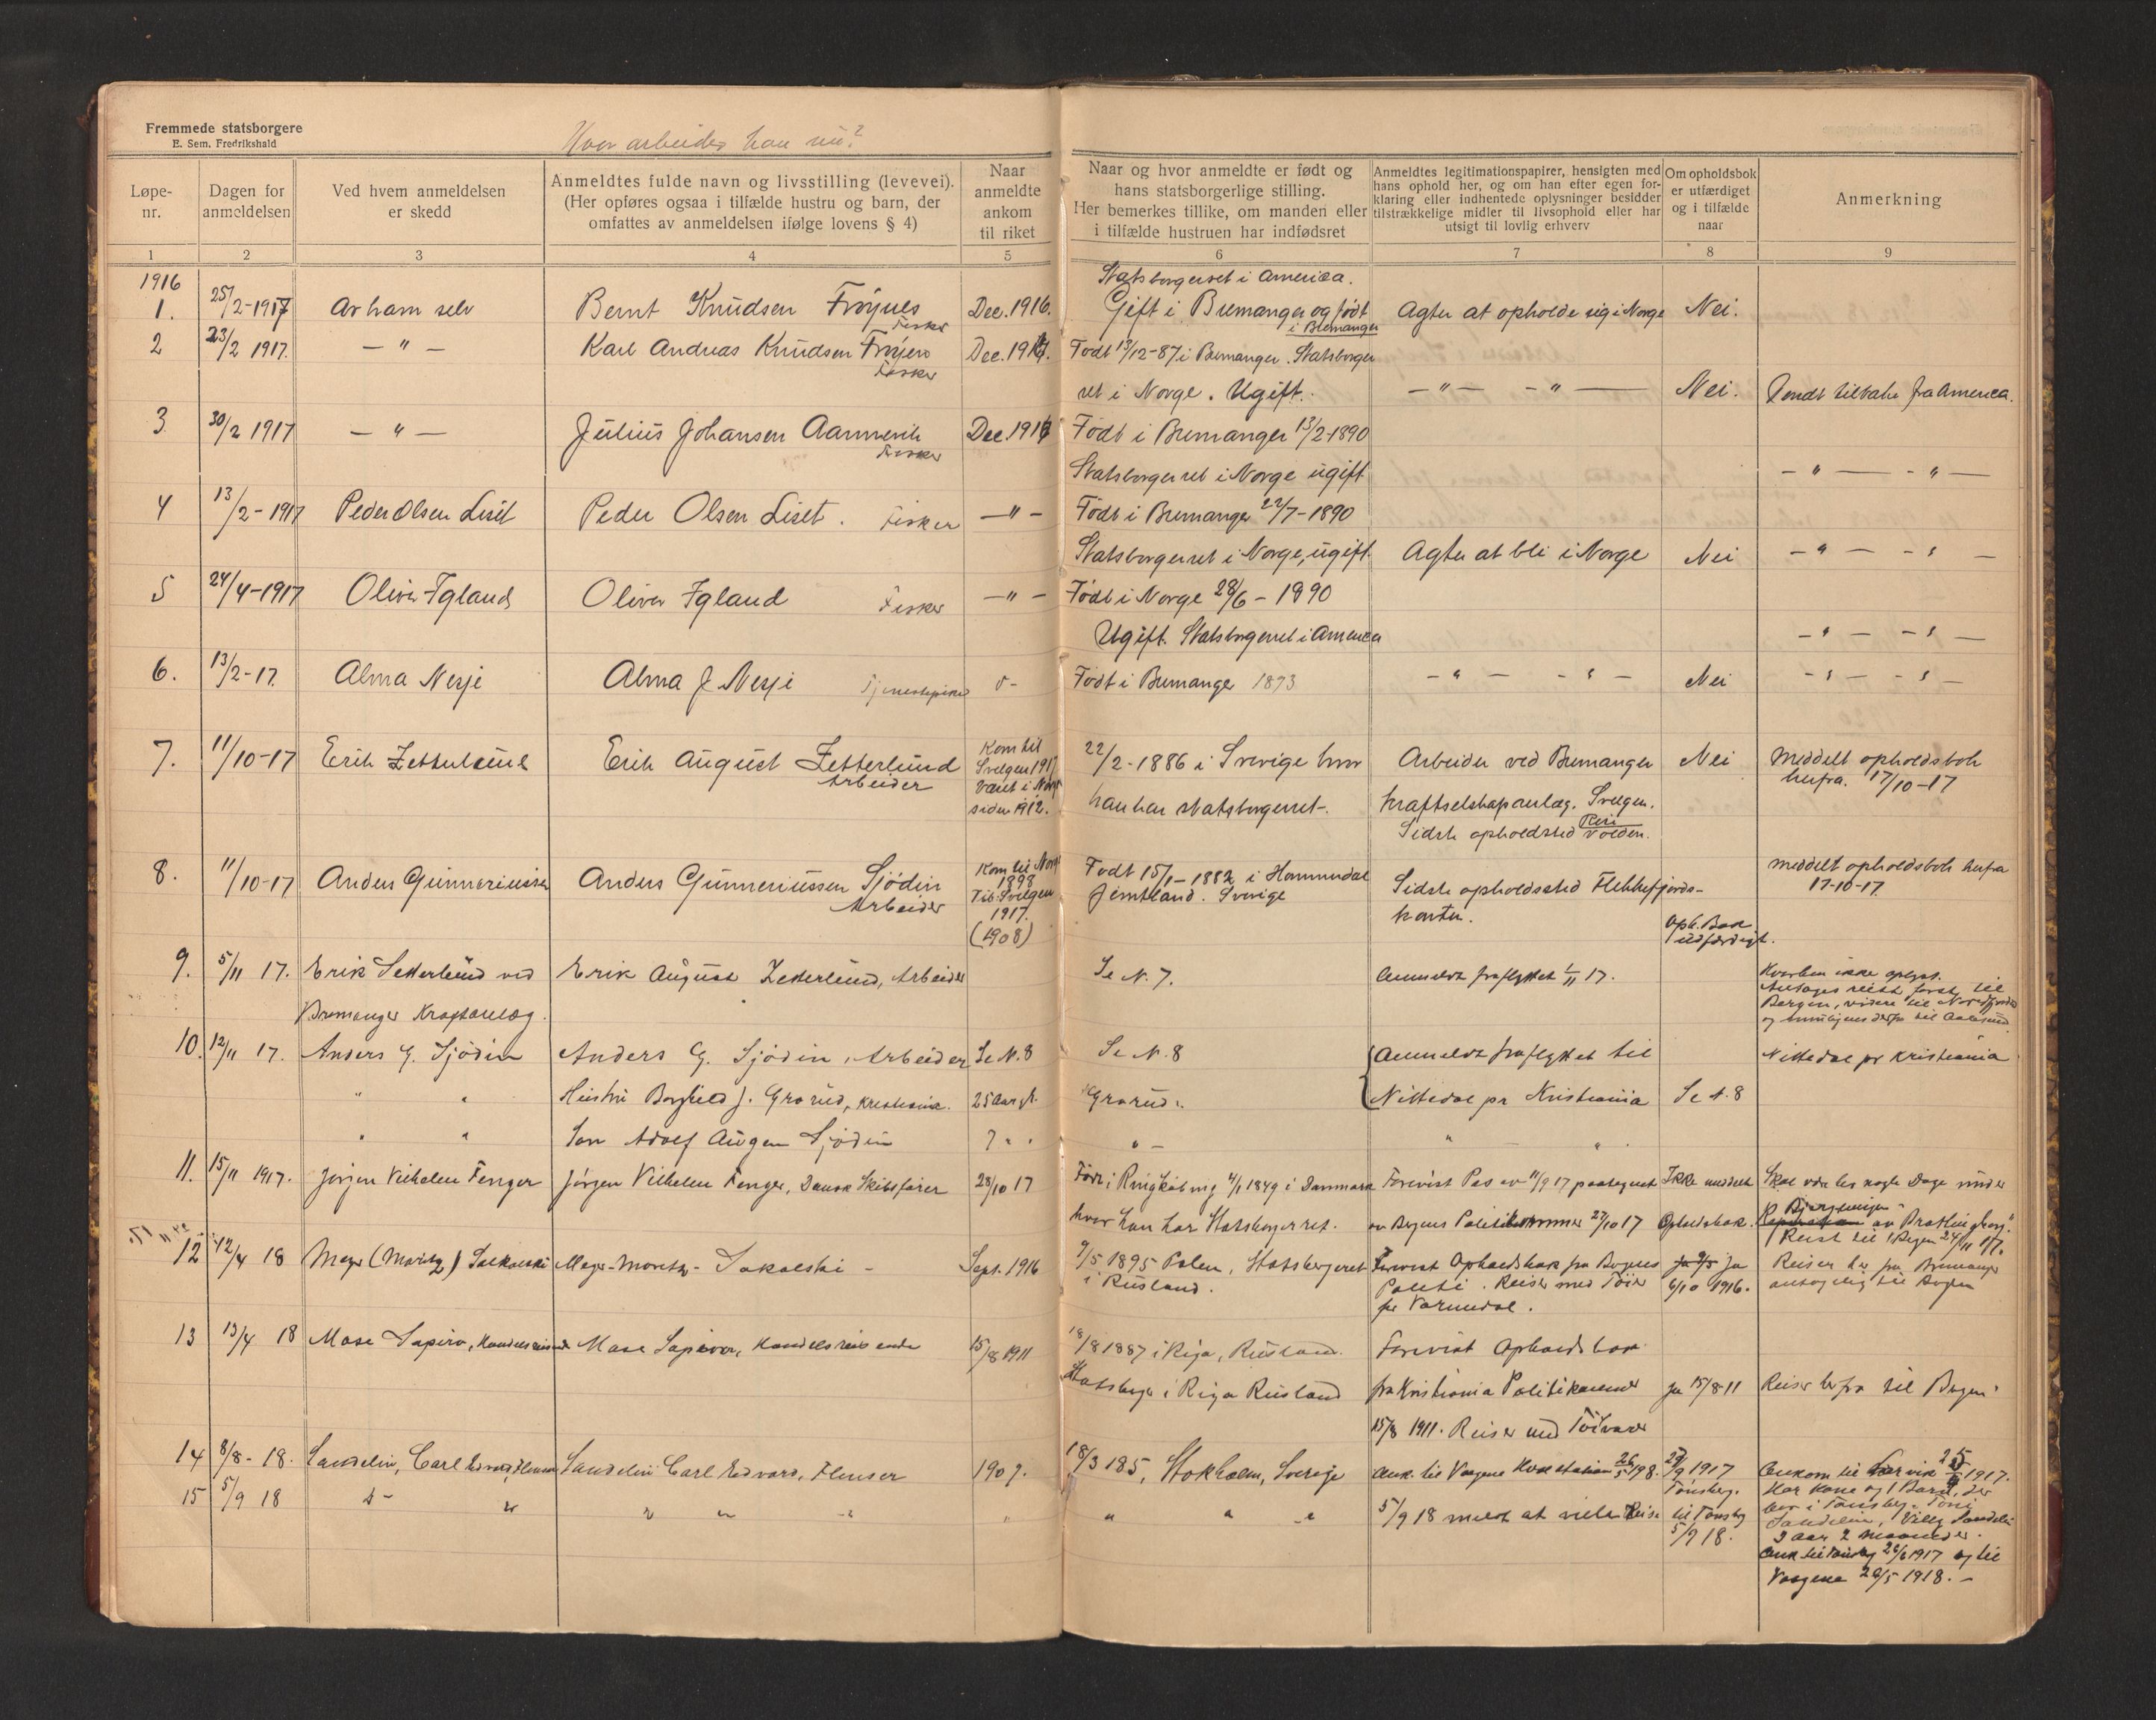 Fremmede statsborgere
E. Sem. Fredrikshald
Hvor arbeider han nu?
Løpe-nr.
Dagen for anmeldelsen
Ved hvem anmeldelsen er skedd
Anmeldtes fulde navn og livsstilling (levevei).
(Her opføres ogsaa i tilfælde hustru og barn, der
omfattes av anmeldelsen ifølge lovens § 4)
Naar anmeldte ankom til riket
Naar og hvor anmeldte er født og
hans statsborgerlige stilling.
Her bemerkes tillike, om manden eller
i tilfælde hustruen har indfødsret
Anmeldtes legitimationspapirer, hensigten med
hans ophold her, og om han efter egen for-
klaring eller indhentede oplysninger besidder
tilstrækkelige midler til livsophold eller har
utsigt til lovlig erhverv
Om opholdsbok
er utfærdiget
og i tilfælde
naar
Anmerkning
1 2 3 4 5 6 7 8 9
1916
Statsborgerret i America.
1. 25/2-1917 Av ham selv Bernt Knudsen Frøynes Dec. 1916. Gift i Bremanger og født Agter at opholde sig i Norge Nei.
Fisker i Bremanger
2 23/2 1917. — " — Karl Andreas Knudsen Dec. 1916. Født 13/12-87 i Bremanger. Statsborger
Fisker
ret i Norge. Ugift. — " — - " — Nei. Vendt tilbake fra America.
3 30/2 1917 — " — Julius Johansen Dec. 1916 Født i Bremanger 13/2-1890
Fisker
Statsborgerret i Norge ugift - " — - " —
4 13/2-1917 Peder Olsen Liset Peder Olsen Liset. Fisker — " - Født i Bremanger 22/7-1890
Statsborgerret i Norge, ugift. Agter at bli i Norge Nei - " — - " —
5 24/4-1917 Oliver Igland Oliver Igland Fisker — " - Født i Norge 28/6-1890
Ugift. Statsborgerret i America - " — - " —
6. 13/2-17. Alma Nesje Alma J. Nesje Tjenestepike Født i Bremanger 1893 - " — - " — Nei - " — - " —
7. 11/10-17 Erik Zetterlund Erik August Zetterlund Kom til 22/2-1886 i Sverige hvor Arbeider ved Bremanger Nei Meddelt opholdsbok
Arbeider Svelgen 1917 herfra. 17/10-17
Været i Norge han har statsborgerret. kraftselskap anlæg. Svelgen.
siden 1912. Sidste opholdssted Volden.
8. 11/10-17 Anders Gunneriussen Anders Gunneriussen Sjödin Kom til Norge Født 15/1-1882 i Hammerdal Meddelt opholdsbok herfra
Arbeider 1898 Jemtland. Sverige Sidste opholdssted Flekkefjords- 17-10-17.
Til Svelgen
1917. kanten.
(1908) Oph. Bok
utfærdigt.
9. 5/11 17. Erik Setterlund ved Erik August Zetterlund, Arbeider Se N. 7. Anmeldt fraflyttet 1/11 17. Hvorhen ikke oplyst.
Bremanger Kraftanlæg. Antages reist først til
Bergen, videre til Nordfjord
og muligens derfra til Aalesund.
10. 12/11 17. Anders G. Sjödin Anders G. Sjödin, Arbeider Se N. 8 Se N. 8 Anmeldt fraflyttet til Nittedal pr Kristiania
" " Hustru Borghild f. Grorud, Kristiania. 25 Aar gl. Grorud. Nittedal pr Kristiania Se N. 8
" " Søn Adolf Sjödin 7 " " " - " "
11. 15/11 1917. Jørgen Vilhelm Fenger Jørgen Vilhelm Fenger, Dansk Skibsfører 28/10 17 Født i Ringkøbing 4/1 1849 i Danmark Forevist Pas av 11/9 17 paategnet Ikke meddelt Skal være her nogle Dage under
hvor han har Statsborgerret. av Bergens Politikammer 27/10 17 Opholdsbok. Bjergningen av
Reist til Bergen 24/11 17.
12 12/4 18 Meyer (Moritz) Sakolski Meyer-Moritz- Sakolski - Sept. 1916 9/5 1895 Polen, Statsborgerret Forevist Opholdsbok fra Bergens ja Reiser her fra Bremanger
i Rusland. Politi. Reiser med Töier 6/10 1916. antagelig til Bergen
pr Vorrundal.
13 13/4 18 Mose Sapiro, Handelsreisende Mose Sapiro, Handelsreisende 15/8 1911 18/8 1887 i Riga, Rusland. Forevist Opholdsbok
Statsborger i Riga Rusland fra Kristiania Politikammer ja 15/8-11 Reiser herfra til Bergen.
15/8 1911. Reiser med Töivarer
14 8/8-18. Sandelin, Carl Edvard Flenser Sandelin Carl Edvard, Flenser 1907. 18/3 185, Stokholm, Sverige Ank. til Vaagene Hvalstation 26/5 198. 29/9 1917 Ankom til Larvik 1917.
Tønsberg. Har Kone og 1 Barn, der
15 5/9 18 " " " " " " " " 5/9 18 meldt at ville Reise til Tønsberg bor i Tønsberg. Toni
5/9 18. Sandelin, Villy Sandelin
2 aar 2 maaneder.
Ank. til Tønsberg 1917 og til
Vaagene 26/5 1918. -